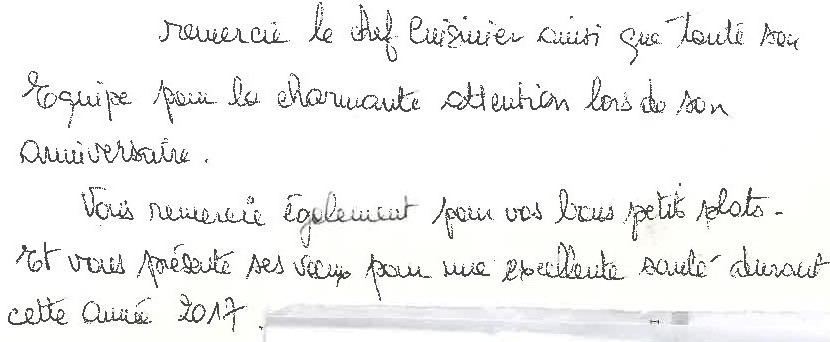 remercie le chef Cuisinier ainsi que toute son
Equipe pour la charmante attention lors de son
anniversaire.
Vous remercie également pour vos bons petits plats.
Et vous présente ses vœux pour une excellente santé durant
cette année 2017.